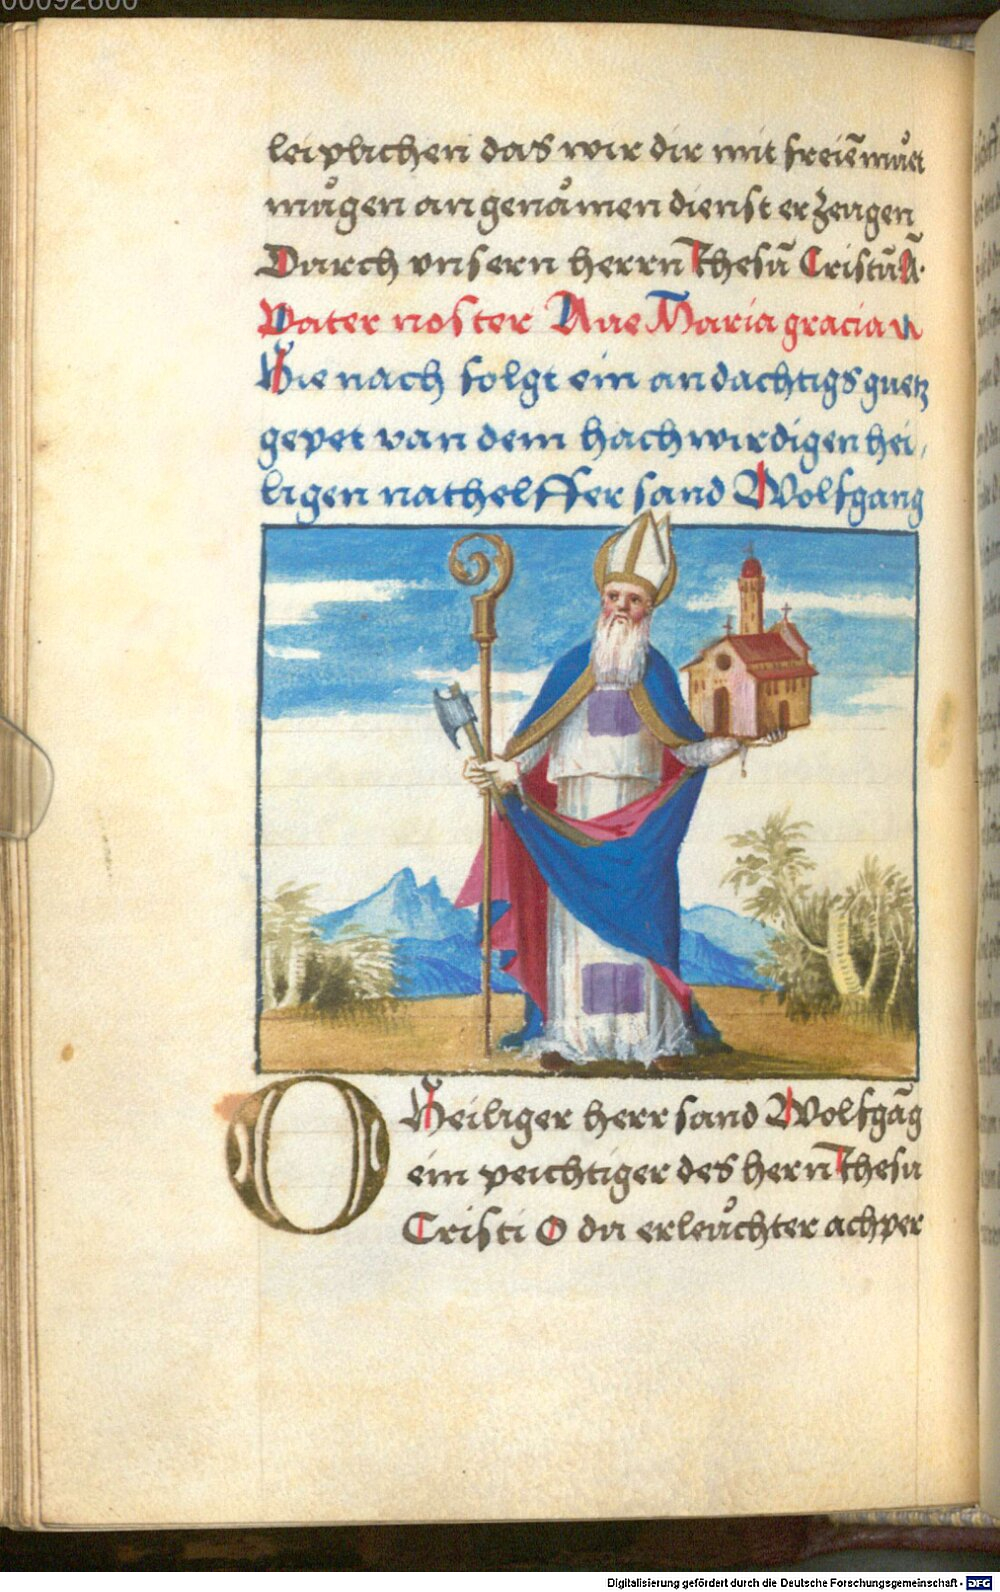 00092800
leiplichen das wir dir mit freiē můet
můgen angenåmen dienst erzeigen
Durch vnsern herrn Jhesū Cristū A.
Pater noster Aue Maria gracia
Hie nach folgt ein andachtigs guetz
gepet van dem hachwirdigen hei,
ligen nathelffer sand Wolfgang
O Heiliger herr sand Wolfgāg
ein peichtiger des hern Jhesu
Cristi O du erleůchter achper
Digitalisierung gefördert durch die Deutsche Forschungsgemeinschaft - DFG